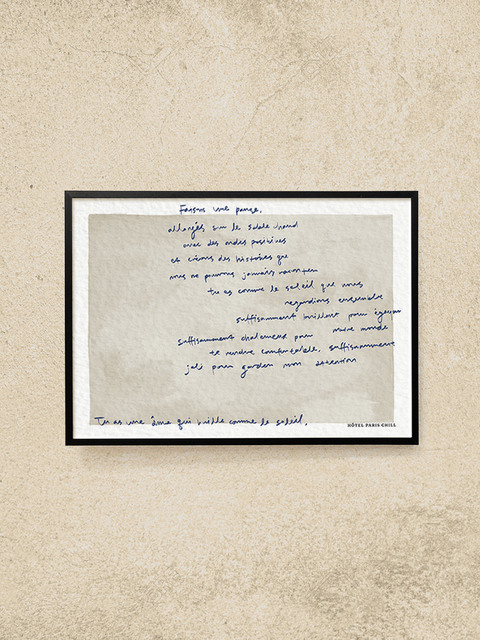 Faisons une pause.
allongés sur le sable chaud
avec des ondes positives
et créons des histoires que
nous ne pourrons jamais raconter
tu es comme le soleil que nous
regardions ensemble
suffisamment brillant pour égayer
suffisamment chaleureux pour notre monde
te rendre comfortable. suffisamment
joli pour garder mon attention
Tu as une âme qui brille comme le soleil.
HÔTEL PARIS CHILL